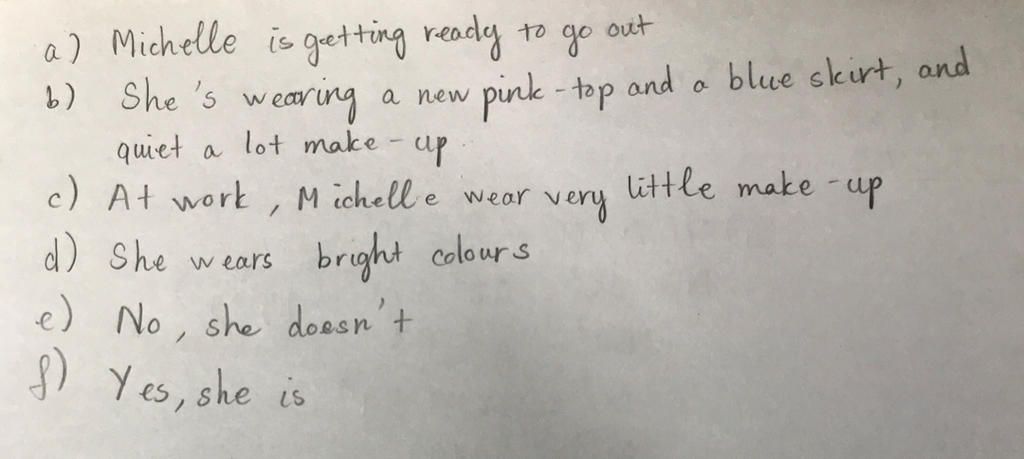 a) Michelle is getting ready to go out
b) She's wearing a new pink-top and a blue skirt, and
quiet a lot make-up
c) At work, Michelle wear very little make-up
d) She wears bright colours
e) No, she doesn't
f) Yes, she is